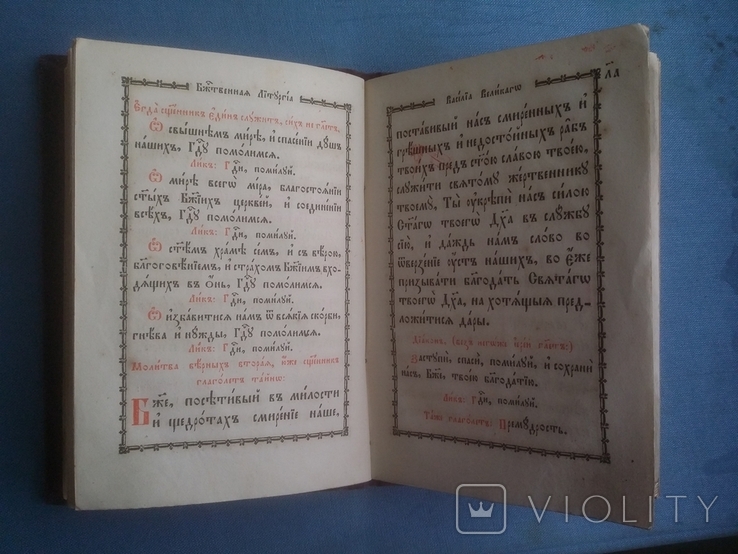 Бж҃твенная Літургіа
Є҆гда̀ сщ҃е́нникъ є҆ди́нъ слꙋ́житъ, си́хъ не гл҃етъ,
Ѡ҆ свы́шнемъ ми́рѣ, и҆ спасе́нїи дꙋ́шъ
на́шихъ, Гдⷭ҇ꙋ помо́лимсѧ.
Ли́къ: Гдⷭ҇и, поми́лꙋй.
Ѡ҆ ми́рѣ всегѡ̀ мі́ра, благостоѧ́нїи
ст҃ы́хъ Бж҃їихъ церкве́й, и҆ соедине́нїи
всѣ́хъ, Гдⷭ҇ꙋ помо́лимсѧ.
Ли́къ: Гдⷭ҇и, поми́лꙋй.
Ѡ҆ ст҃ѣ́мъ хра́мѣ се́мъ, и҆ съ вѣ́рою,
благоговѣ́нїемъ, и҆ стра́хомъ Бж҃їимъ вхо-
дѧ́щихъ въ ѻ҆́нь, Гдⷭ҇ꙋ помо́лимсѧ.
Ли́къ: Гдⷭ҇и, поми́лꙋй.
Ѡ҆ и҆зба́витисѧ на́мъ ѿ всѧ́кїѧ ско́рби,
гнѣ́ва и҆ нꙋ́жды, Гдⷭ҇ꙋ помо́лимсѧ.
Ли́къ: Гдⷭ҇и, поми́лꙋй.
Моли́тва вѣ́рныхъ втора́ѧ, ю҆́же сщ҃е́нникъ
глаго́летъ та́йнѡ:
Бж҃е, посѣти́вый въ ми́лости
и҆ щедро́тахъ смире́нїе на́ше,
Васі́лїа Вели́кагѡ
л҃а
поста́вивый на́съ смире́нныхъ и҆
грѣ́шныхъ и҆ недосто́йныхъ ра̑бъ
твои́хъ пред̾ ст҃о́ю сла́вою твое́ю,
слꙋжи́ти свято́мꙋ же́ртвенникꙋ
твоемꙋ̀. Ты̀ ᲂу҆крѣпѝ на́съ си́лою
ст҃а́гѡ твоегѡ̀ Дх҃а въ слꙋ́жбꙋ
сїю̀, и҆ да́ждь на́мъ сло́во во
ѿверзе́нїе ᲂу҆́стъ на́шихъ, во є҆́же
призыва́ти благода́ть Свѧта́гѡ
твоегѡ̀ Дх҃а, на хотѧ́щыѧ пред-
ложи́тисѧ да́ры.
Засту́пи, спасѝ, поми́лꙋй, и҆ сохранѝ
на́съ, Бж҃е, твое́ю благода́тїю.
Ли́къ: Гдⷭ҇и, поми́лꙋй.
Премꙋ́дрость.
VIOLITY